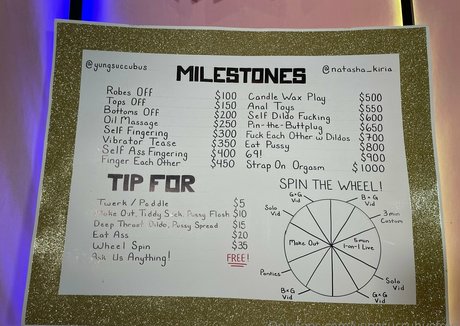 @yungsuccubus
MILESTONES
@natasha_kiria
Robes Off $100
Tops Off $150
Bottoms Off $200
Oil Massage $250
Self Fingering $300
Vibrator Tease $350
Self Ass Fingering $400
Finger Each Other $450
Candle Wax Play $500
Anal Toys $550
Self Dildo Fucking $600
Pin-the-Buttplug $650
Fuck Each Other w/ Dildos $700
Eat Pussy $800
69! $900
Strap On Orgasm $1000
TIP FOR
Twerk / Paddle $5
Make Out, Tiddy Suck, Pussy Flash $10
Deep Throat Dildo, Pussy Spread $15
Eat Ass $20
Wheel Spin $35
Ask Us Anything! FREE!
SPIN THE WHEEL!
G×G
Vid
B×G
Vid
Solo
Vid
3min
Custom
Make Out
5min
1-on-1 Live
Panties
Solo
Vid
B×G
Vid
G×G
Vid